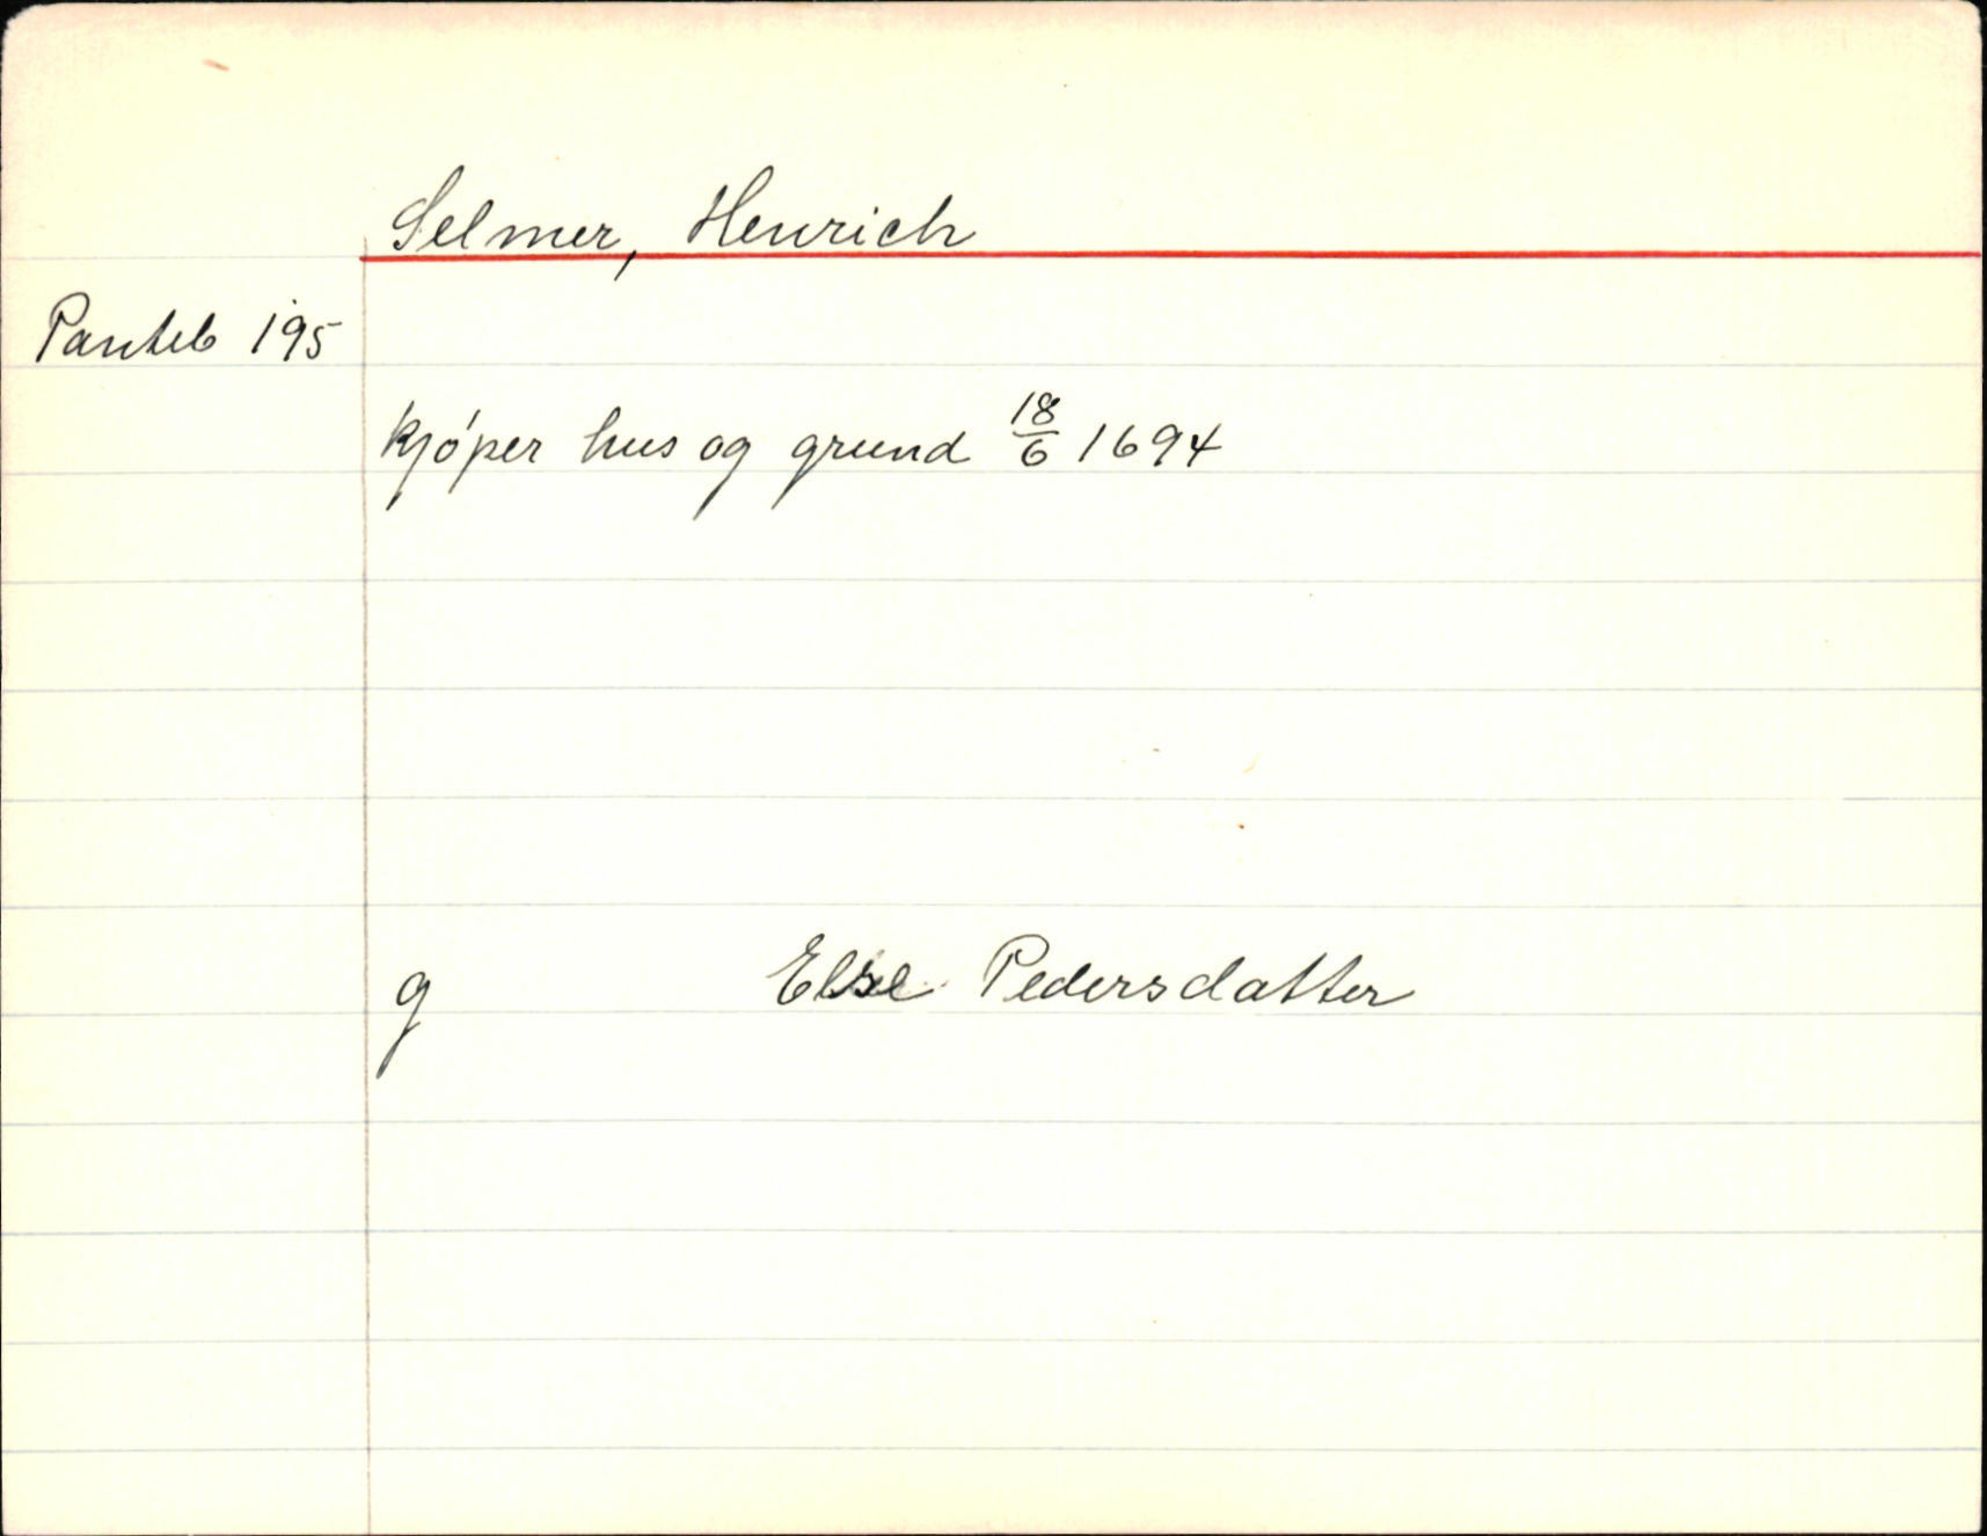 Selmer, Henrich
Panteb 195
kjóper hus og grund 18/6 1694
g Else Pedersdatter